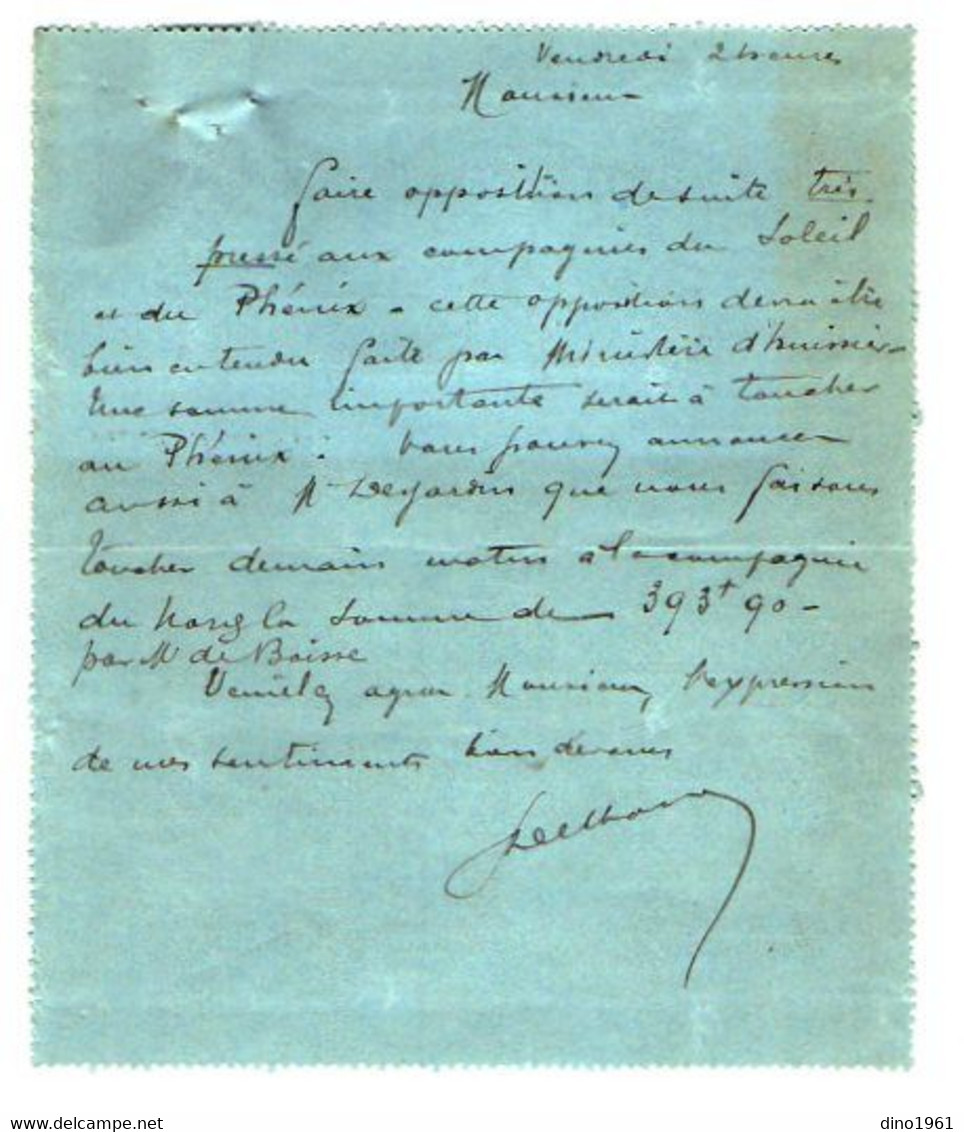 Vendredi 2 heures
Monsieur
faire opposition de suite très
pressé aux compagnies du Soleil
et du Phénix - cette opposition devra être
bien entendu faite par Ministère d'huissier -
Une somme importante serait à toucher
au Phénix. Vous pouvez annoncer
aussi à Mr Desjardins que nous faisons
toucher demain matin à la compagnie
du Nord la somme de 393f 90 -
par Mr de Boisse
Veuillez agréer Monsieur l'expression
de mes sentiments bien dévoués
dino1961